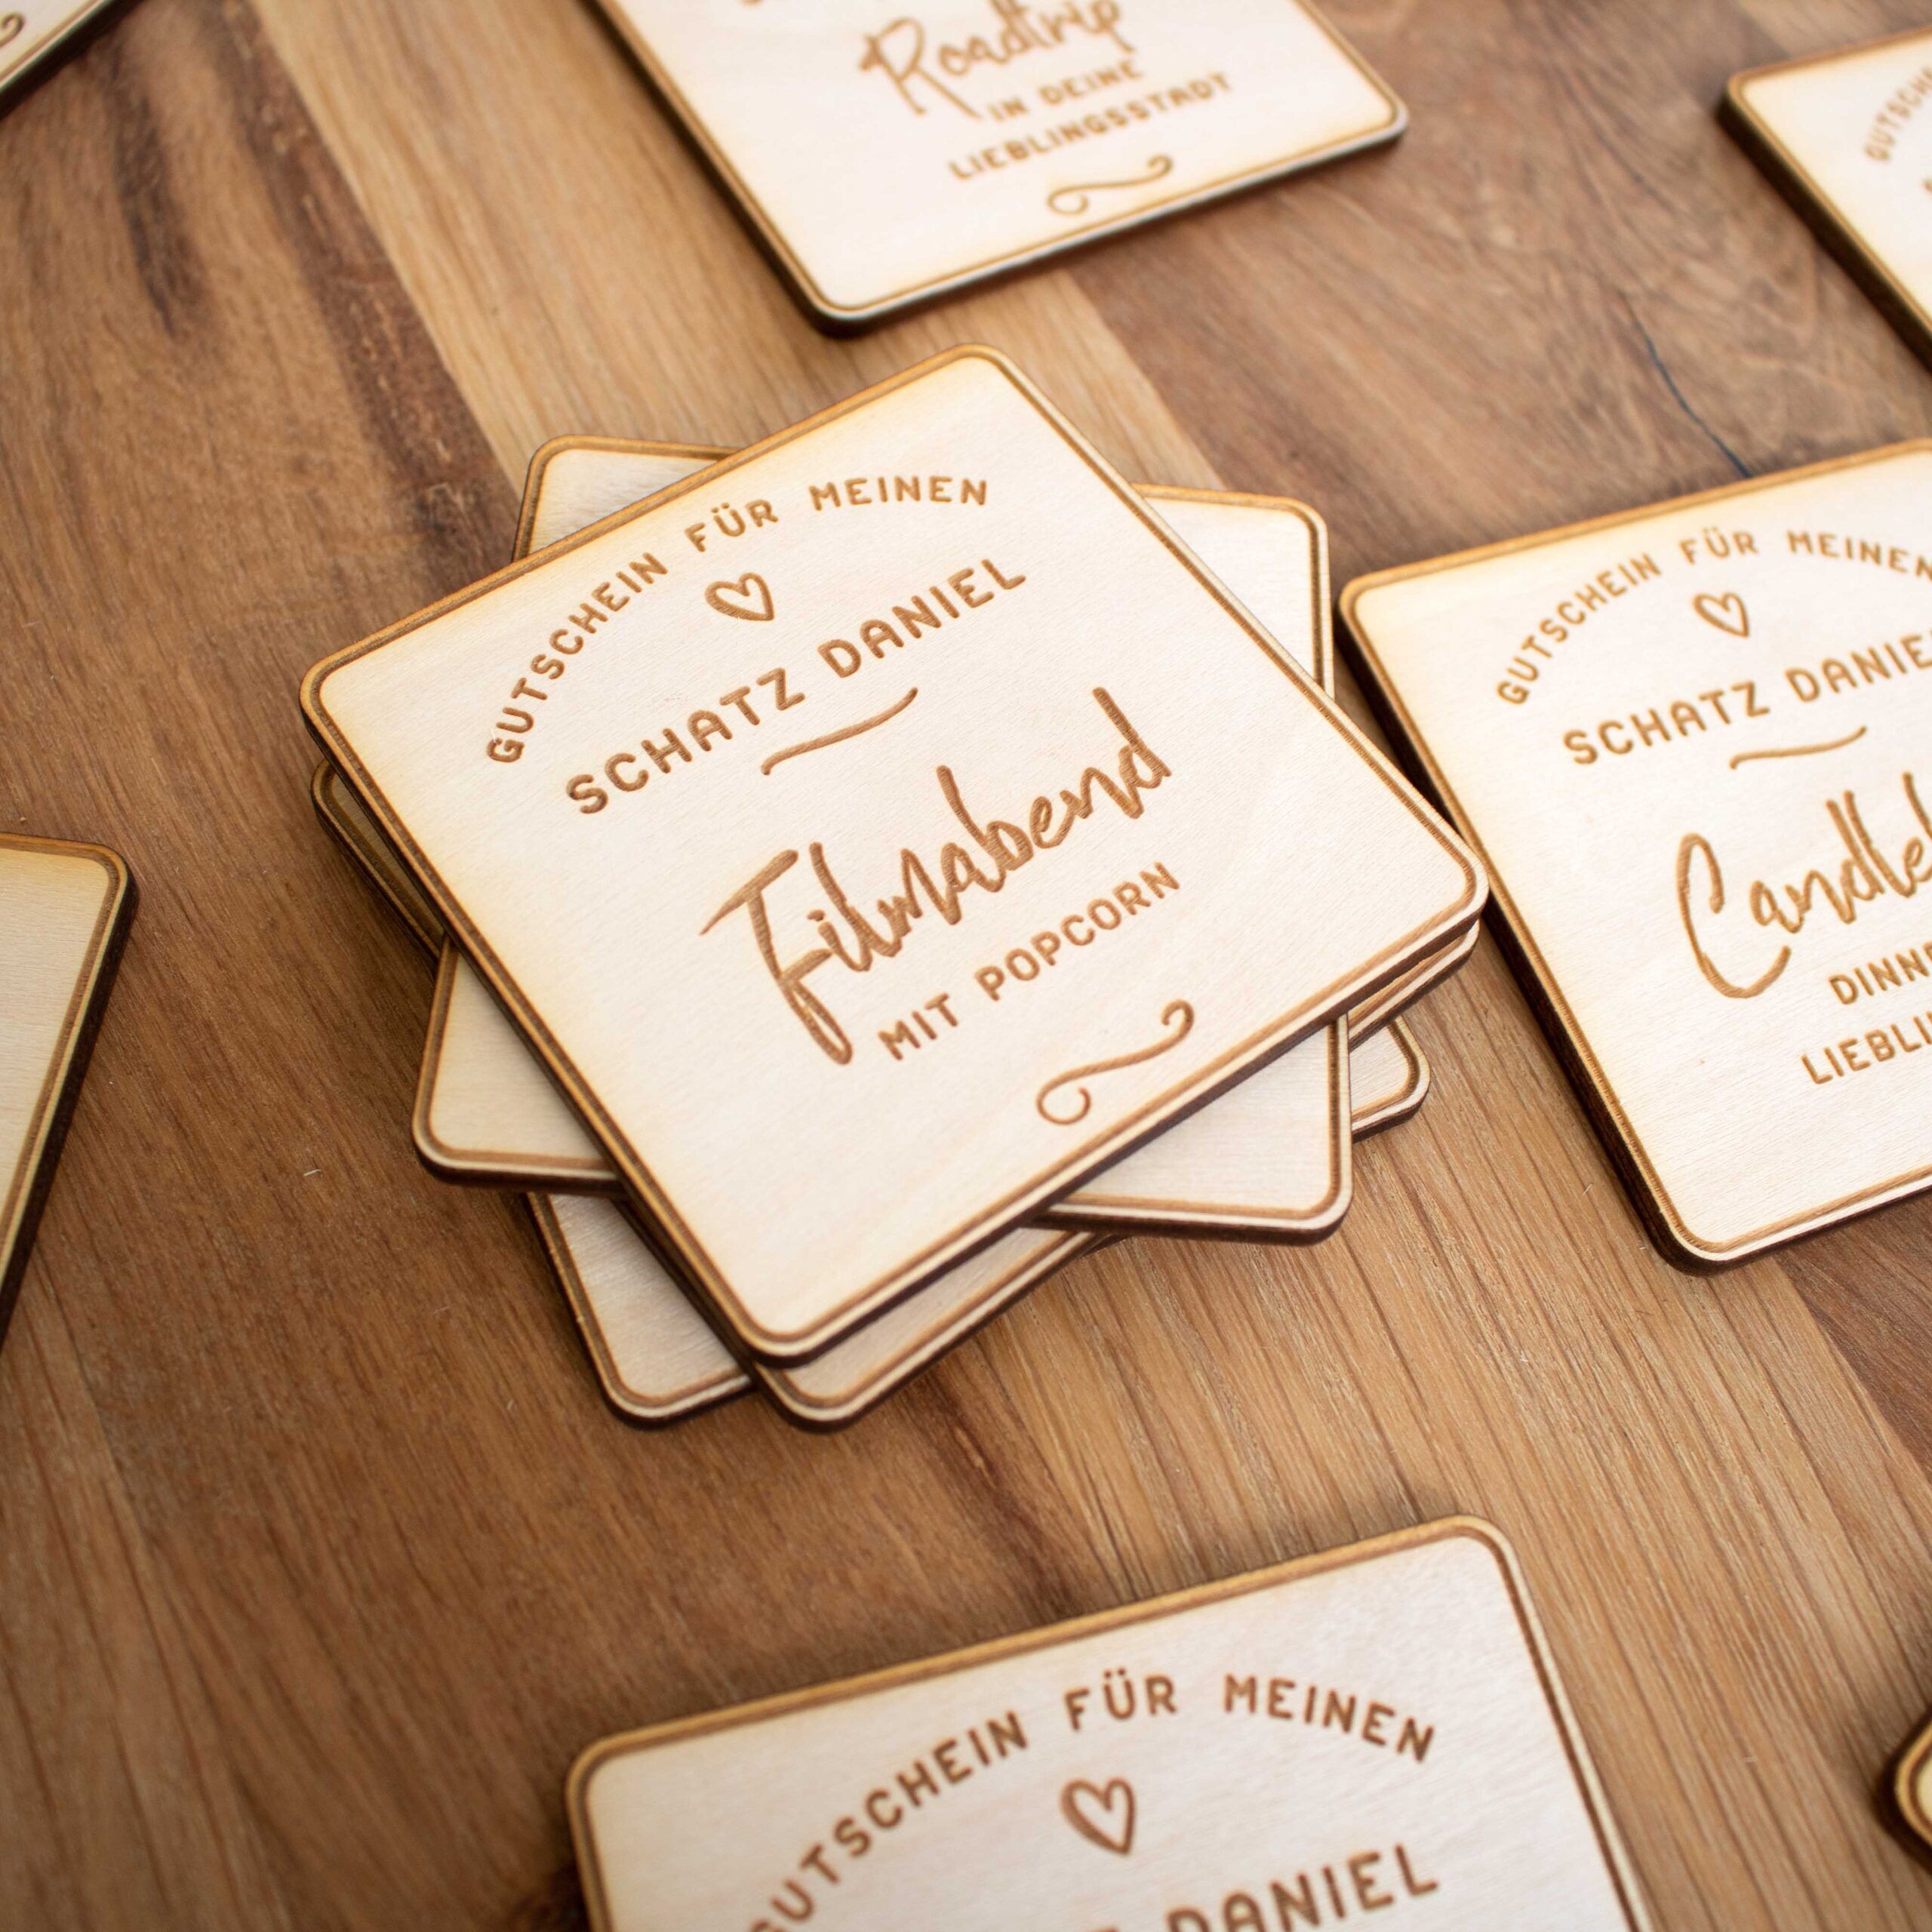 Roadtrip
IN DEINE
LIEBLINGSSTADT
GUTSCHEIN FÜR MEINEN
SCHATZ DANIEL
Filmabend
MIT POPCORN
GUTSCHEIN FÜR MEINEN
SCHATZ DANIEL
GUTSCHEIN FÜR MEINEN
DANIEL